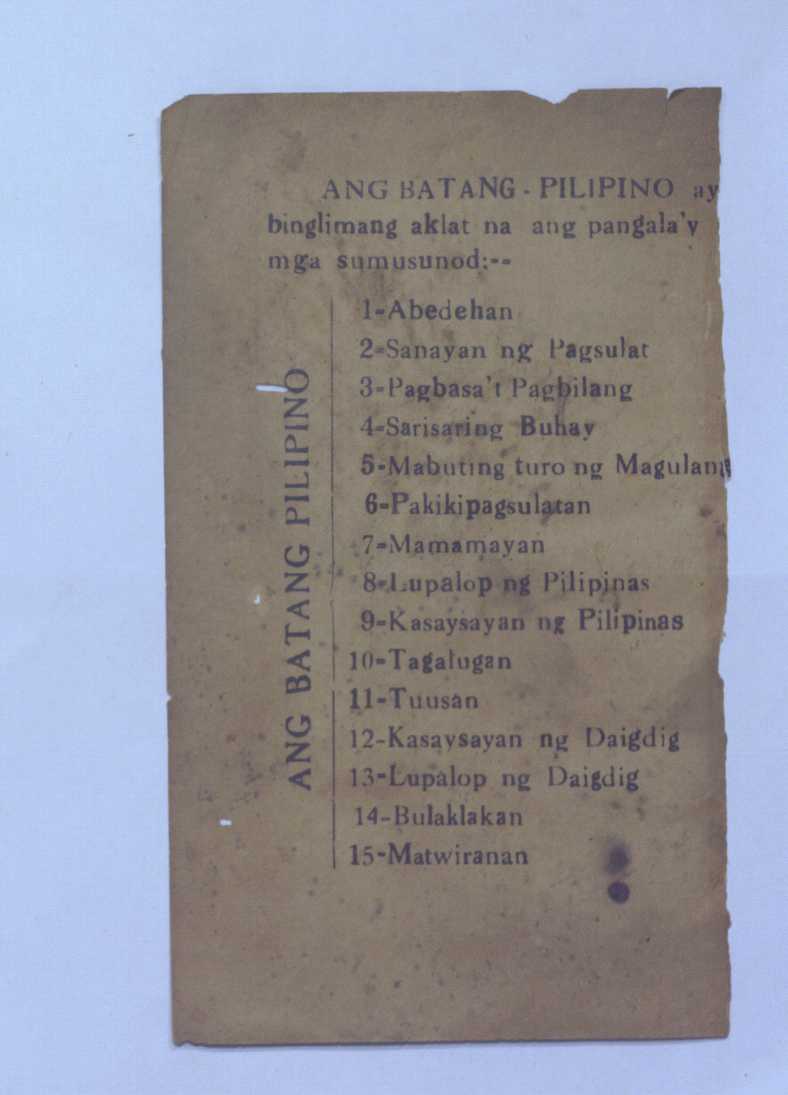 ANG BATANG - PILIPINO ay
binglimang aklat na ang pangala'y
mga sumusunod:--
ANG BATANG PILIPINO
1-Abedehan
2-Sanayan ng Pagsulat
3-Pagbasa't Pagbilang
4-Sarisaring Buhay
5-Mabuting turo ng Magulang
6-Pakikipagsulatan
7-Mamamayan
8-Lupalop ng Pilipinas
9-Kasaysayan ng Pilipinas
10-Tagalugan
11-Tuusan
12-Kasaysayan ng Daigdig
13-Lupalop ng Daigdig
14-Bulaklakan
15-Matwiranan